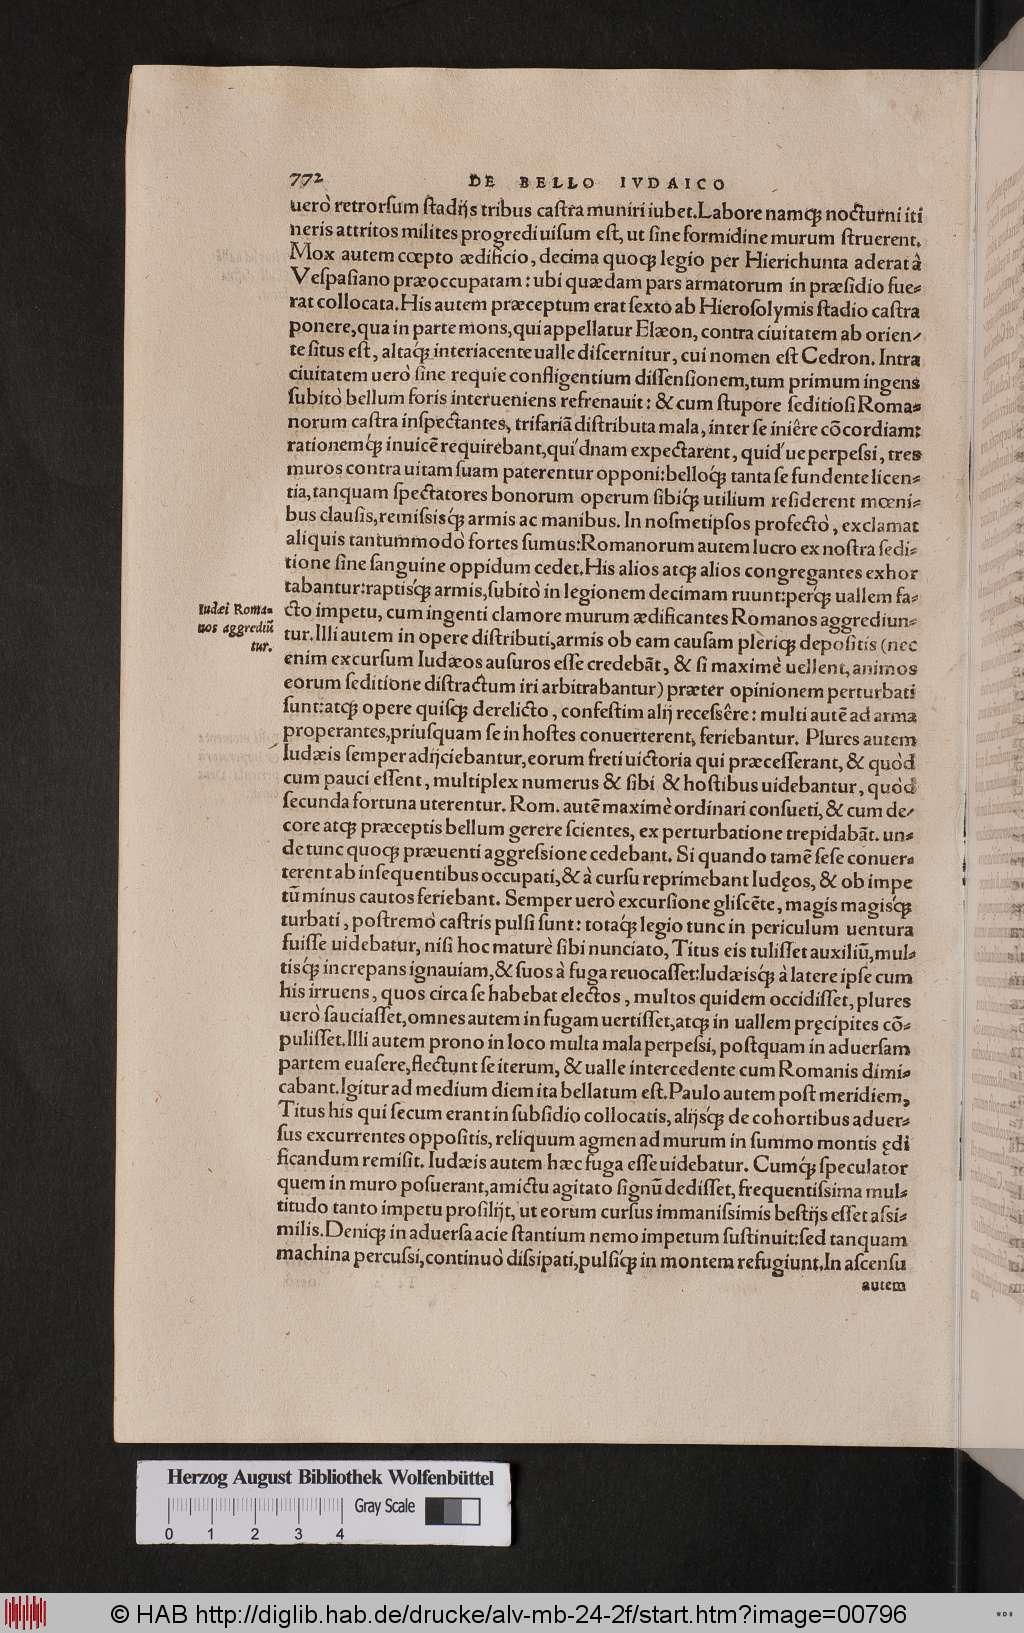 772 DE BELLO IVDAICO
uerò retrorſum ſtadijs tribus caſtra muniri iubet.Labore namq́; nocturni iti
neris attritos milites progredi uiſum eſt, ut ſine formidine murum ſtruerent.
Mox autem cœpto ædificio, decima quoq; legio per Hierichunta aderat à
Veſpaſiano præoccupatam: ubi quædam pars armatorum in præſidio fue-
rat collocata.His autem præceptum erat ſexto ab Hieroſolymis ſtadio caſtra
ponere,qua in parte mons,qui appellatur Elæon, contra ciuitatem ab orien-
te ſitus eſt, altaq́; interiacente ualle diſcernitur, cui nomen eſt Cedron. Intra
ciuitatem uerò ſine requie confligentium diſſenſionem,tum primum ingens
ſubitò bellum foris interueniens refrenauit: & cum ſtupore ſeditioſi Roma-
norum caſtra inſpectantes, trifariã diſtributa mala, inter ſe iniêre cõcordiam:
rationemq́; inuicẽ requirebant,qui'dnam expectarent, quid'ue perpeſsi, tres
muros contra uitam ſuam paterentur opponi:belloq́; tanta ſe fundente licen-
tia,tanquam ſpectatores bonorum operum ſibiq́; utilium reſiderent mœni-
bus clauſis,remiſsisq́; armis ac manibus. In noſmetipſos profectò, exclamat
aliquis tantummodò fortes ſumus:Romanorum autem lucro ex noſtra ſedi-
tione ſine ſanguine oppidum cedet.His alios atq; alios congregantes exhor
tabantur:raptisq́; armis,ſubitò in legionem decimam ruunt:perq́; uallem fa-
cto impetu, cum ingenti clamore murum ædificantes Romanos aggrediun-
Iudæi Roma-
nos aggrediũ
tur.
tur.Illi autem in opere diſtributi,armis ob eam cauſam pleriq; depoſitis (nec
enim excurſum Iudæos auſuros eſſe credebãt, & ſi maximè uellent, animos
eorum ſeditione diſtractum iri arbitrabantur) præter opinionem perturbati
ſunt:atq; opere quiſq; derelicto, confeſtim alij receſsêre: multi autẽ ad arma
properantes,priuſquam ſe in hoſtes conuerterent, feriebantur. Plures autem
Iudæis ſemper adijciebantur,eorum freti uictoria qui præceſſerant, & quòd
cum pauci eſſent, multiplex numerus & ſibi & hoſtibus uidebantur, quòd
ſecunda fortuna uterentur. Rom. autẽ maximè ordinari conſueti, & cum de-
core atq; præceptis bellum gerere ſcientes, ex perturbatione trepidabãt. un-
de tunc quoq; præuenti aggreſsione cedebant. Si quando tamẽ ſeſe conuer-
terent ab inſequentibus occupati,& à curſu reprimebant Iudęos, & ob impe
tũ minus cautos feriebant. Semper uerò excurſione gliſcẽte, magis magisq́;
turbati, poſtremò caſtris pulſi ſunt: totaq́; legio tunc in periculum uentura
fuiſſe uidebatur, niſi hoc maturè ſibi nunciato, Titus eis tuliſſet auxiliũ,mul-
tisq́; increpans ignauiam,& ſuos à fuga reuocaſſet:Iudæisq́; à latere ipſe cum
his irruens, quos circa ſe habebat electos, multos quidem occidiſſet, plures
uerò ſauciaſſet,omnes autem in fugam uertiſſet,atq; in uallem pręcipites cõ-
puliſſet.Illi autem prono in loco multa mala perpeſsi, poſtquam in aduerſam
partem euaſere,flectunt ſe iterum, & ualle intercedente cum Romanis dimi-
cabant.Igitur ad medium diem ita bellatum eſt.Paulo autem poſt meridiem,
Titus his qui ſecum erant in ſubſidio collocatis, alijsq́; de cohortibus aduer-
ſus excurrentes oppoſitis, reliquum agmen ad murum in ſummo montis ędi
ficandum remiſit. Iudæis autem hæc fuga eſſe uidebatur. Cumq́; ſpeculator
quem in muro poſuerant,amictu agitato ſignũ dediſſet, frequentiſsima mul-
titudo tanto impetu proſilijt, ut eorum curſus immaniſsimis beſtijs eſſet aſsi-
milis.Deniq; in aduerſa acie ſtantium nemo impetum ſuſtinuit:ſed tanquam
machina percuſsi,continuò diſsipati,pulſiq́; in montem refugiunt.In aſcenſu
autem
Herzog August Bibliothek Wolfenbüttel
Gray Scale
0 1 2 3 4
© HAB http://diglib.hab.de/drucke/alv-mb-24-2f/start.htm?image=00796